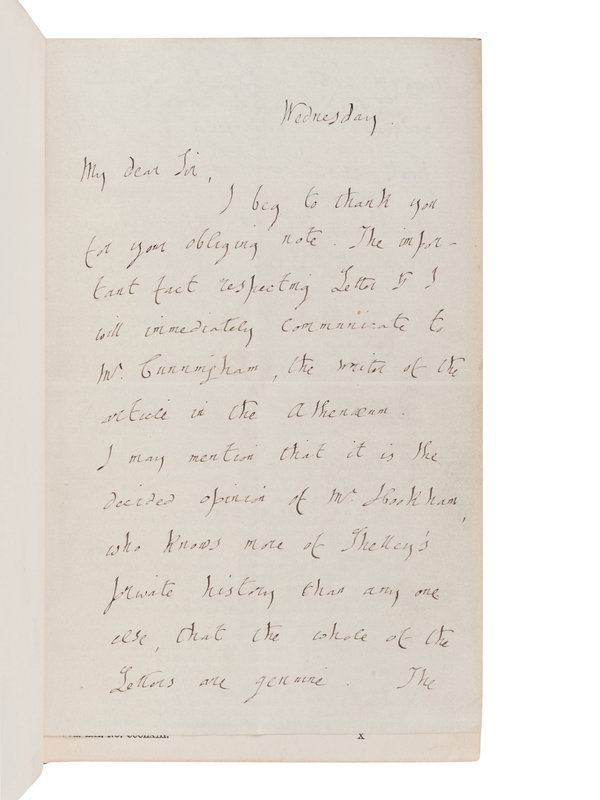 Wednesday.
My dear Sir,
I beg to thank you
for your obliging note. The impor-
tant fact respecting Letter V I
will immediately communicate to
Mr. Cunningham, the writer of the
article in the Athenæum.
I may mention that it is the
decided opinion of Mr. Hookham,
who knows more of Shelley's
private history than any one
else, that the whole of the
Letters are genuine. The
X